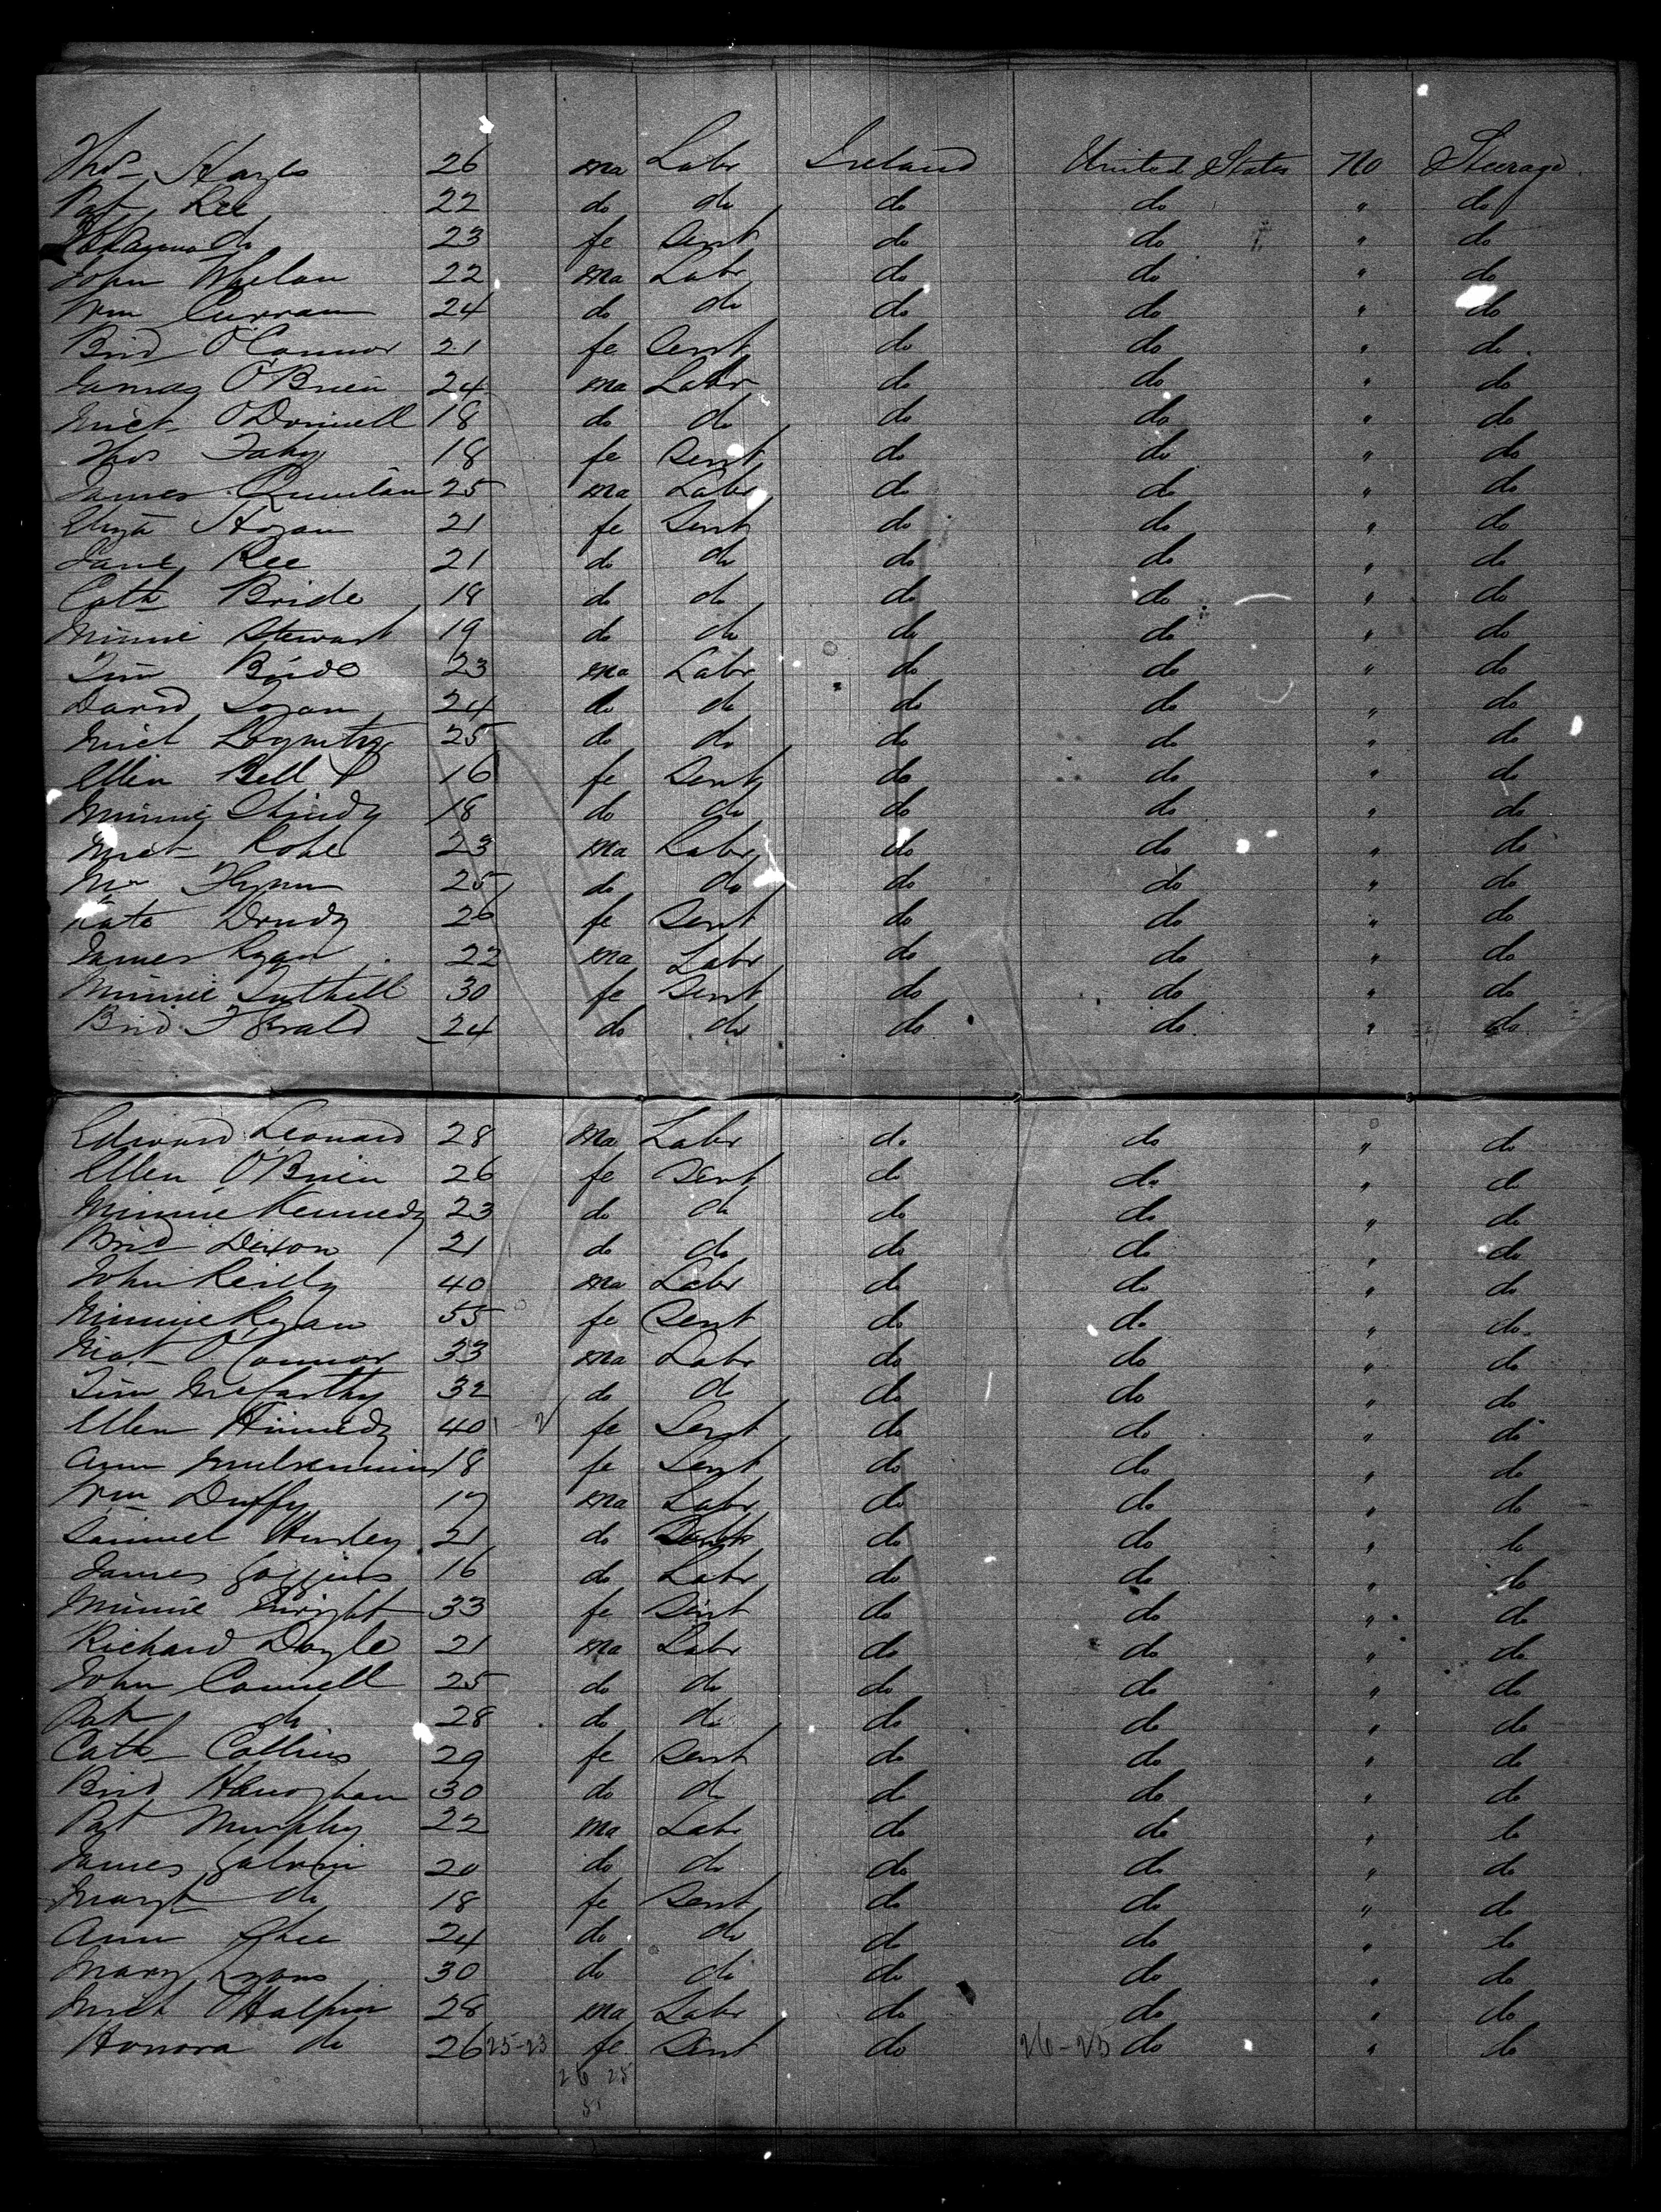 Thos Hayes 26 ma Labr Ireland United States No Steerage
Pat Kee 22 do do do do " do
do 23 fe Servt do do " do
John Whelan 22 ma Labr do do " do
Wm Curran 24 do do do do " do
Brid O'Connor 21 fe Servt do do " do
James O'Brien 24 ma Labr do do " do
Mict O'Donnell 18 do do do do " do
Thos Fahy 18 fe Servt do do " do
James Quinlan 25 ma Labr do do " do
Eliza Hogan 21 fe Servt do do " do
Jane Kee 21 do do do do " do
Cath Bride 18 do do do do " do
Minnie Stewart 19 do do do do " do
Tim Bride 23 ma Labr do do " do
David Logan 24 do do do do " do
Mict 25 do do do do " do
Ellen Bell 16 fe Servt do do " do
Minnie 18 do do do do " do
Mict 23 ma Labr do do " do
Flynn 25 do do do do " do
Kate 26 fe Servt do do " do
James Ryan 22 ma Labr do do " do
Minnie Tuthill 30 fe Servt do do " do
Brid F Gerald 24 do do do do " do
Edward Leonard 28 ma Labr do do " do
Ellen O'Brien 26 fe Servt do do " do
Minnie Kennedy 23 do do do do " do
Brid Dixon 21 do do do do " do
John Reilly 40 ma Labr do do " do
Minnie Ryan 55 fe Servt do do " do
Mat O'Connor 33 ma Labr do do " do
Tim McCarthy 32 do do do do " do
Ellen 40 fe Servt do do " do
Ann 18 fe Servt do do " do
Wm Duffy 17 ma Labr do do " do
Samuel Hurley 21 do do do " do
James Goggins 16 do Labr do do " do
Minnie Enright 33 fe Servt do do " do
Richard Doyle 21 ma Labr do do " do
John Connell 25 do do do do " do
Pat do 28 do do do do " do
Cath Collins 29 fe Servt do do " do
Brid Heneghan 30 do do do do " do
Pat Murphy 22 ma Labr do do " do
James Galvin 20 do do do do " do
Margt do 18 fe Servt do do " do
Ann Shee 24 do do do do " do
Mary Lyons 30 do do do do " do
Mict O'Halpin 28 ma Labr do do " do
Honora do 26 25-23 fe Servt do 26-25 do " do
26 25
51